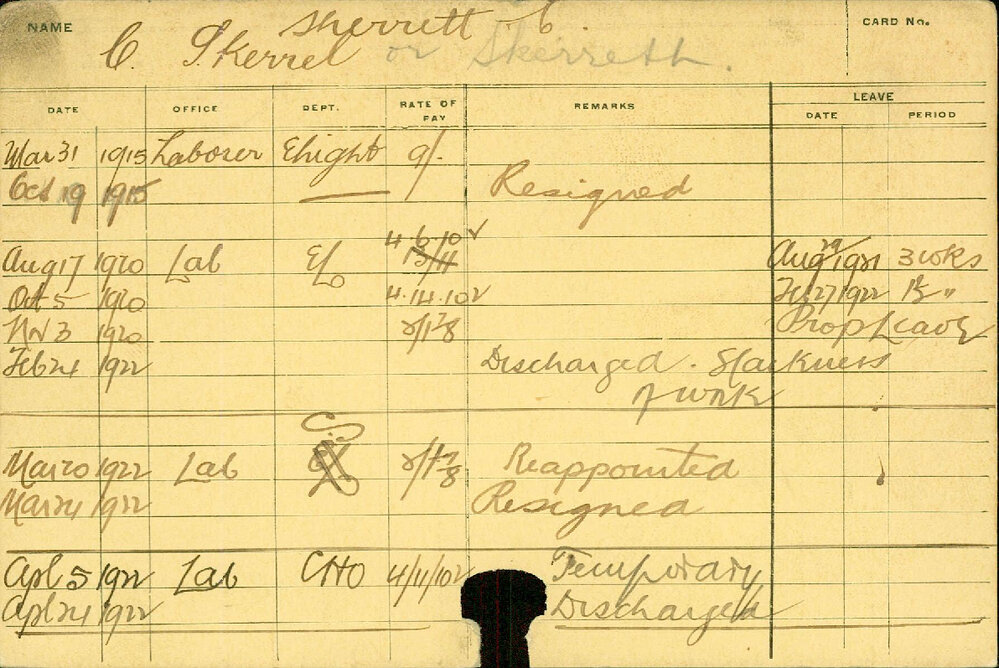 NAME Skerrett C. CARD No.
C. Skerrel or Skerreth.
DATE OFFICE DEPT. RATE OF PAY REMARKS LEAVE
DATE PERIOD
Mar 31 1915 Laborer 9/-
Oct 19 1915 — Resigned
Aug 17 1920 Lab EL 4.6.10 Aug 29/1921 3 wks
Oct 5 1920 4.14.10 Feb 27/1922 "
Nov 3 1920 Prop Leave
Feb 24 1922 Discharged. Slackness
of work
Mar 20 1922 Lab Reappointed
Mar 24 1922 Resigned
Apl 5 1922 Lab CHO 4/11/10 Temporary
Apl 24 1922 Discharged